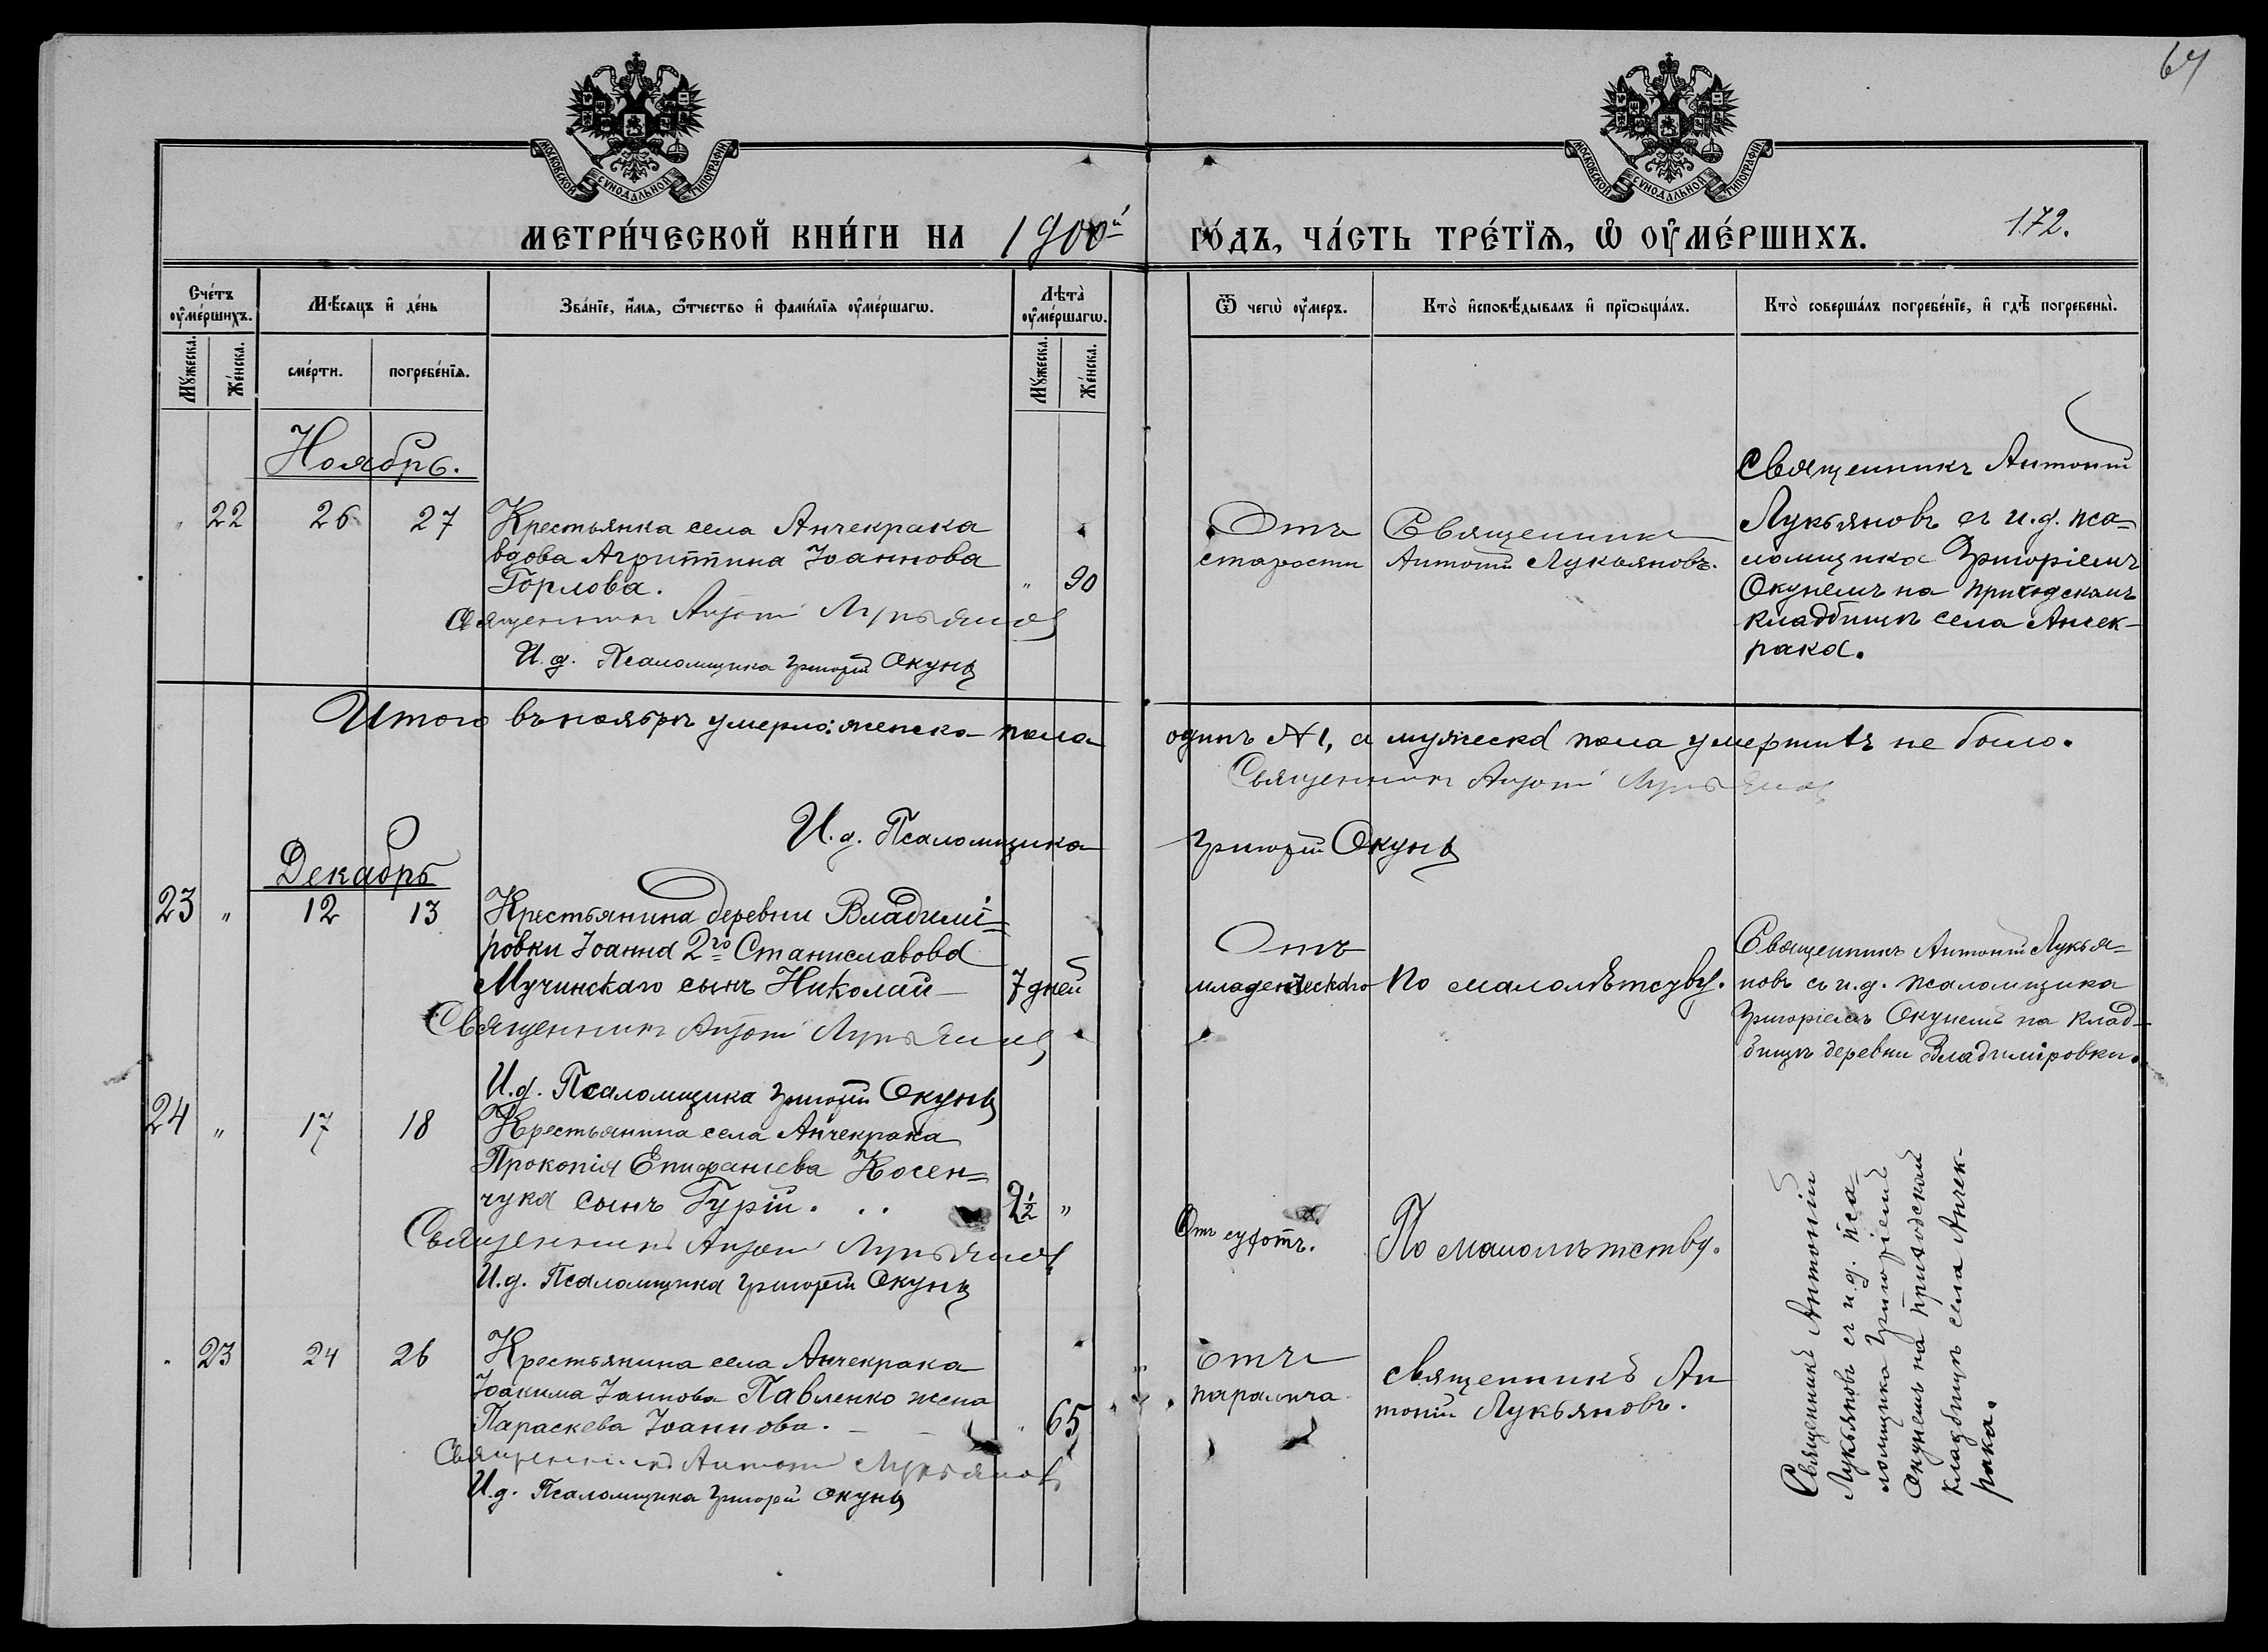 64
МОСКОВСКОЙ СѴНОДАЛЬНОЙ ТИПОГРАФІИ
МОСКОВСКОЙ СѴНОДАЛЬНОЙ ТИПОГРАФІИ
МЕТРИ́ЧЕСКОЙ КНИ́ГИ НА 1900й ГО́ДЪ, ЧА́СТЬ ТРЕ́ТЇѦ, Ѡ ОУ҆МЕ́РШИХЪ. 172.
Сче́тъ оу҆ме́ршихъ.
Мꙋ́жеска.
Же́нска.
Мѣ́сяцъ и҆ де́нь
сме́рти.
погребе́нїѧ.
Зва́нїе, и҆́мѧ, ѻ҆́тчество и҆ фами́лїѧ оу҆ме́ршагѡ.
Лѣ́та оу҆ме́ршагѡ.
Мꙋ́жеска.
Же́нска.
Ѿ чегѡ̀ оу҆́меръ.
Кто̀ и҆сповѣ́дывалъ и҆ прїѡбща́лъ.
Кто̀ соверша́лъ погребе́нїе, и҆ гдѣ̀ погребены̀.
Ноябрь.
" 22 26 27
Крестьянка села Анчекрака
вдова Агриппина Іоаннова
Горлова.
" 90
Священникъ Антоній Лукьяновъ
И.д. Псаломщика Григорій Окунь
Отъ
старости
Священникъ
Антоній Лукьяновъ.
Священникъ Антоній
Лукьяновъ съ и.д. пса-
ломщика Григоріемъ
Окунемъ на приходскомъ
кладбищѣ села Анчек-
рака.
Итого въ ноябрѣ умерло: женска пола одинъ №1, а мужеска пола умершихъ не было.
Священникъ Антоній Лукьяновъ
И.д. Псаломщика Григорій Окунь
Декабрь
23 " 12 13
Крестьянина деревни Владимі=
ровки Іоанна 2го Станиславова
Мучинскаго сынъ Николай
7 дней
Священникъ Антоній Лукьяновъ
И.д. Псаломщика Григорій Окунь
Отъ
младенческаго
По малолѣтству.
Священникъ Антоній Лукья-
новъ съ и.д. псаломщика
Григоріемъ Окунемъ на клад-
бищѣ деревни Владиміровки.
24 " 17 18
Крестьянина села Анчекрака
Прокопія Епифаніева Косен=
чука сынъ Гурій. . .
2½ "
Священникъ Антоній Лукьяновъ
И.д. Псаломщика Григорій Окунь
Отъ сухотъ.
По малолѣтству.
" 23 24 26
Крестьянина села Анчекрака
Іоакима Іаннова Павленко жена
Параскева Іоаннова.
" 65
Священникъ Антоній Лукьяновъ
И.д. Псаломщика Григорій Окунь
Отъ
паралича
Священникъ Ан
тоній Лукьяновъ.
Священникъ Антоній
Лукьяновъ съ и.д. пса-
ломщика Григоріемъ
Окунемъ на приходской
кладбищѣ села Анчек-
рака.